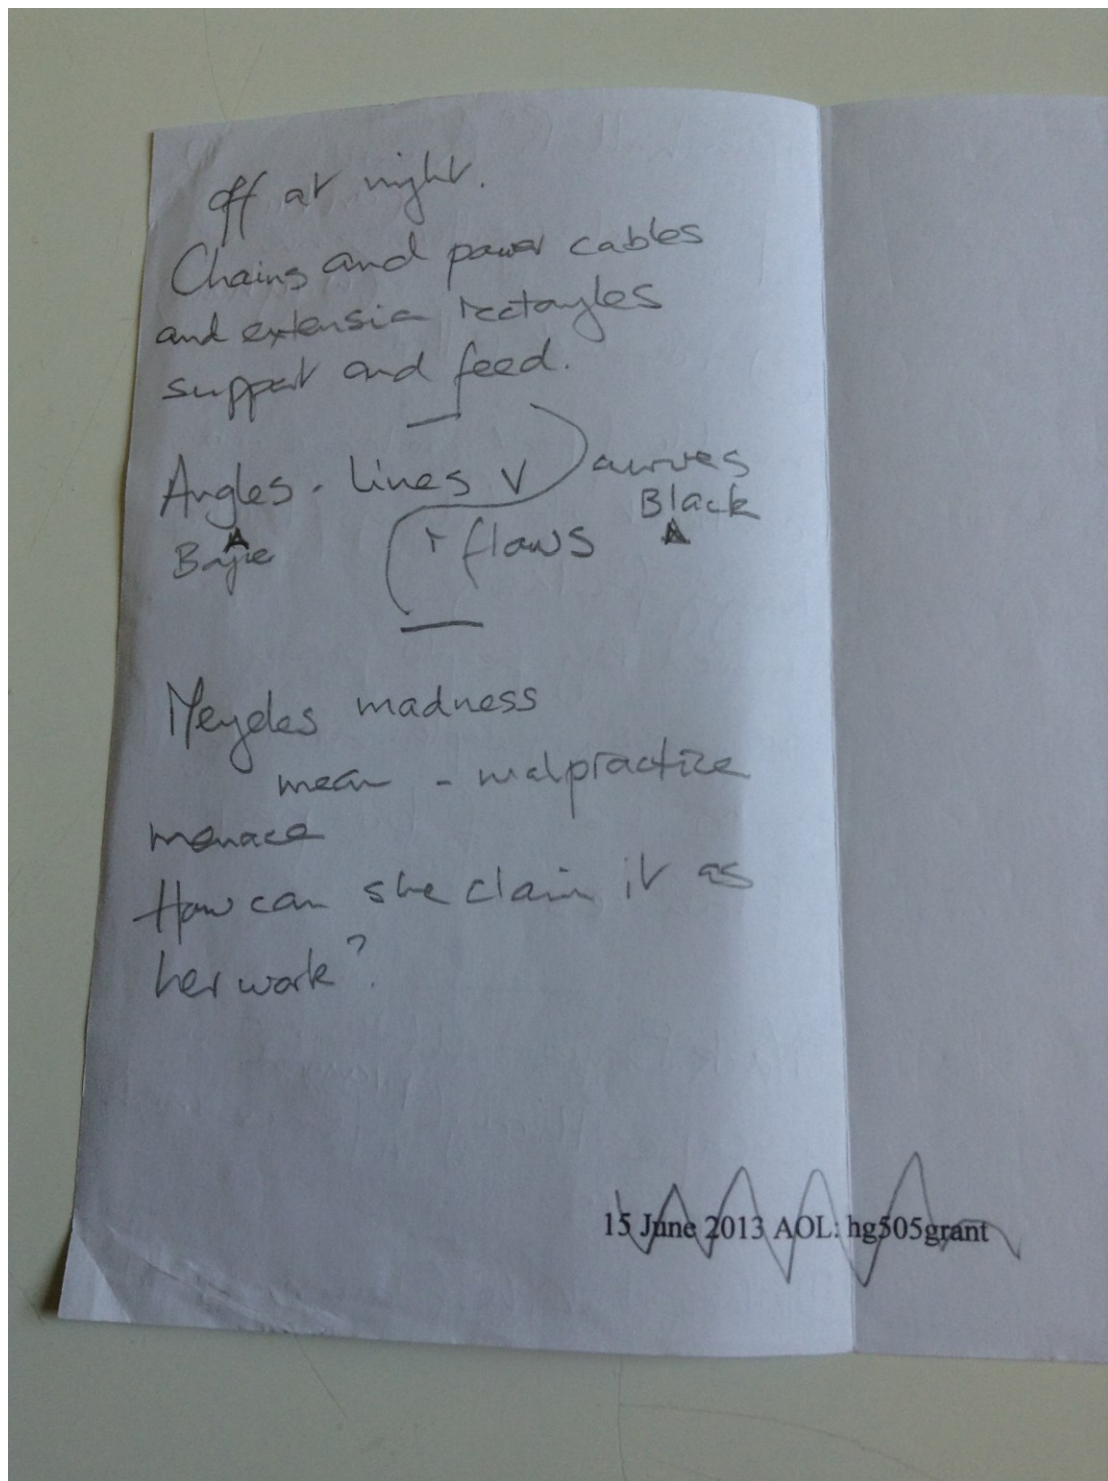 off at night.
Chains and power cables
and extension rectangles
support and feed.
Angles. Lines v curves
Black
+ flows
madness
mean - malpractice
menace
How can she claim it as
her work?
15 June 2013 AOL: hg505grant